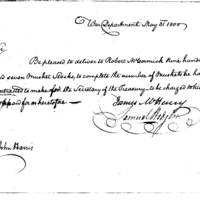 War Department May 31 1800
Be pleased to deliver to Robert McCormick nine hundred
and seven Musket Locks, to complete the number of Muskets he has
contracted to make for the Secretary of the Treasury to be charged
as heretofore
James McHenry
Samuel Hodgdon
John Harris